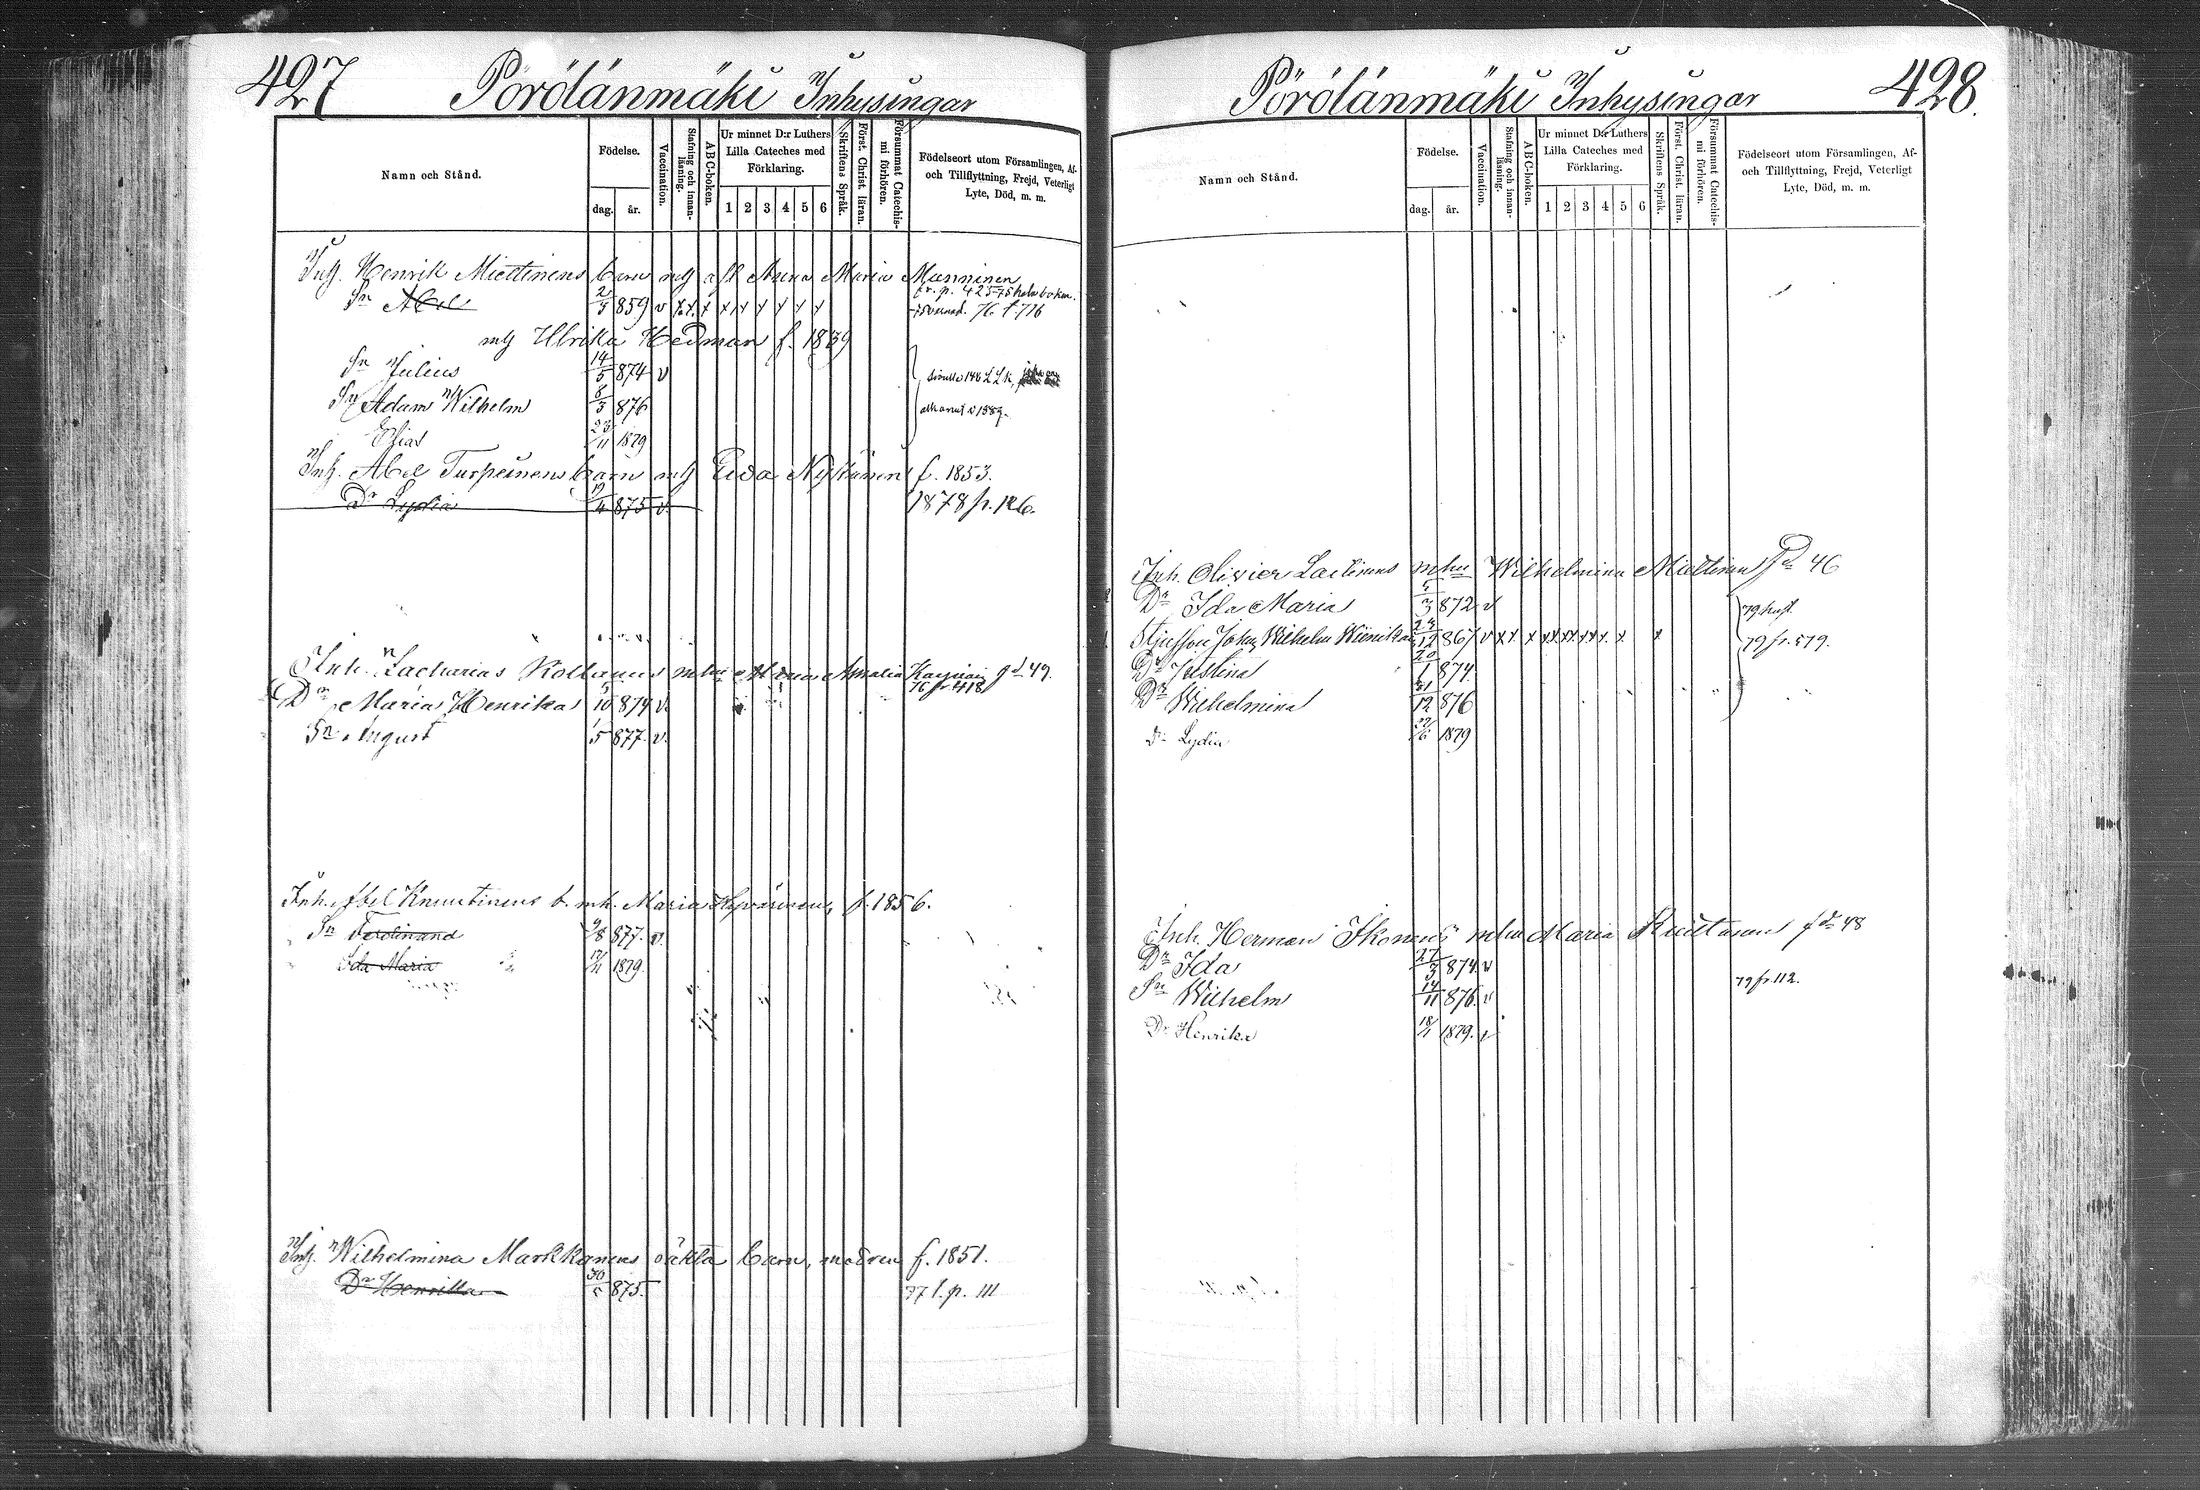 427 Pörölänmäki Inhysingar
Namn och Stånd.
Födelse.
dag. år.
Vaccination.
Stafning och innanläsning.
ABC-boken.
Ur minnet D:r Luthers Lilla Cateches med Förklaring.
1 2 3 4 5 6
Skriftens Språk.
Först. Christ. läran.
Försummat Catechismi förhören.
Födelseort utom Församlingen, Af- och Tillflyttning, Frejd, Veterligt Lyte, Död, m. m.
Inh. Henrik Miettinens barn mh afl Anna Maria Manninen
fr. p. 425
Sn Abel 2/3 859 v x x x x x x x x x 76 f 716
mh Ulrika Hedman f. 1839
Sn Julius 14/5 874 v
Sn Adam Wilhelm 8/3 876
Elias 23/11 1879
Inh. Abel Turpeinens barn mh Eeda Nyktänen f. 1853.
Dr Lydia 19/4 875 v. 1878 p. 126.
Inh. Zacharias Kollanus mhu Maria Amalia fd 49.
76 fr 418
Dr Maria Henrika 5/10 874 v.
Sn August 1/5 877. v.
Inh. Abel Knuutinens b. mh. Maria Hyvärinen, f. 1856.
Sn Ferdinand 9/8 877. v.
Ida Maria 17/11 1879.
Inh. Wilhelmina Markkanens oäkta barn, modren f. 1851.
Dr Henrika 30/ 875. 77 f. p. 111
Pörölänmäki Inhysingar 428.
Namn och Stånd.
Födelse.
dag. år.
Vaccination.
Stafning och innanläsning.
ABC-boken.
Ur minnet D:r Luthers Lilla Cateches med Förklaring.
1 2 3 4 5 6
Skriftens Språk.
Först. Christ. läran.
Försummat Catechismi förhören.
Födelseort utom Församlingen, Af- och Tillflyttning, Frejd, Veterligt Lyte, Död, m. m.
Inh. Olivier Laitinens mhu Wilhelmina Miettinen fd 46
Dr Ida Maria 5/3 872 v
Styfson Joh. Wilhelm 24/12 867 v x x x x x x x x x x 79 fr. 579.
Dr Justina 20/1 874.
Dr Wilhelmina 31/12 876
Dr Lydia 22/6 1879
Inh. Herman Ikonens mhu Maria fd 48
Dr Ida 27/3 874. v
Sn Wilhelm 14/11 876. v 79 fr. 112.
Dr Henrika 18/1 1879. v